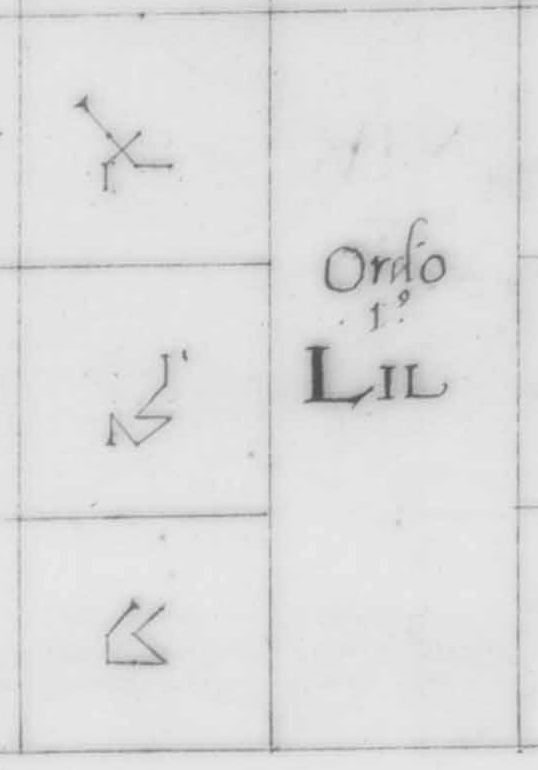 Ordo
1º
LIL